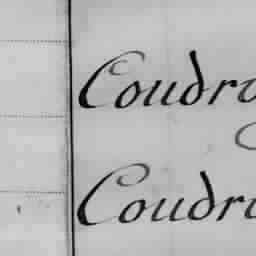 Coudro
Coudro